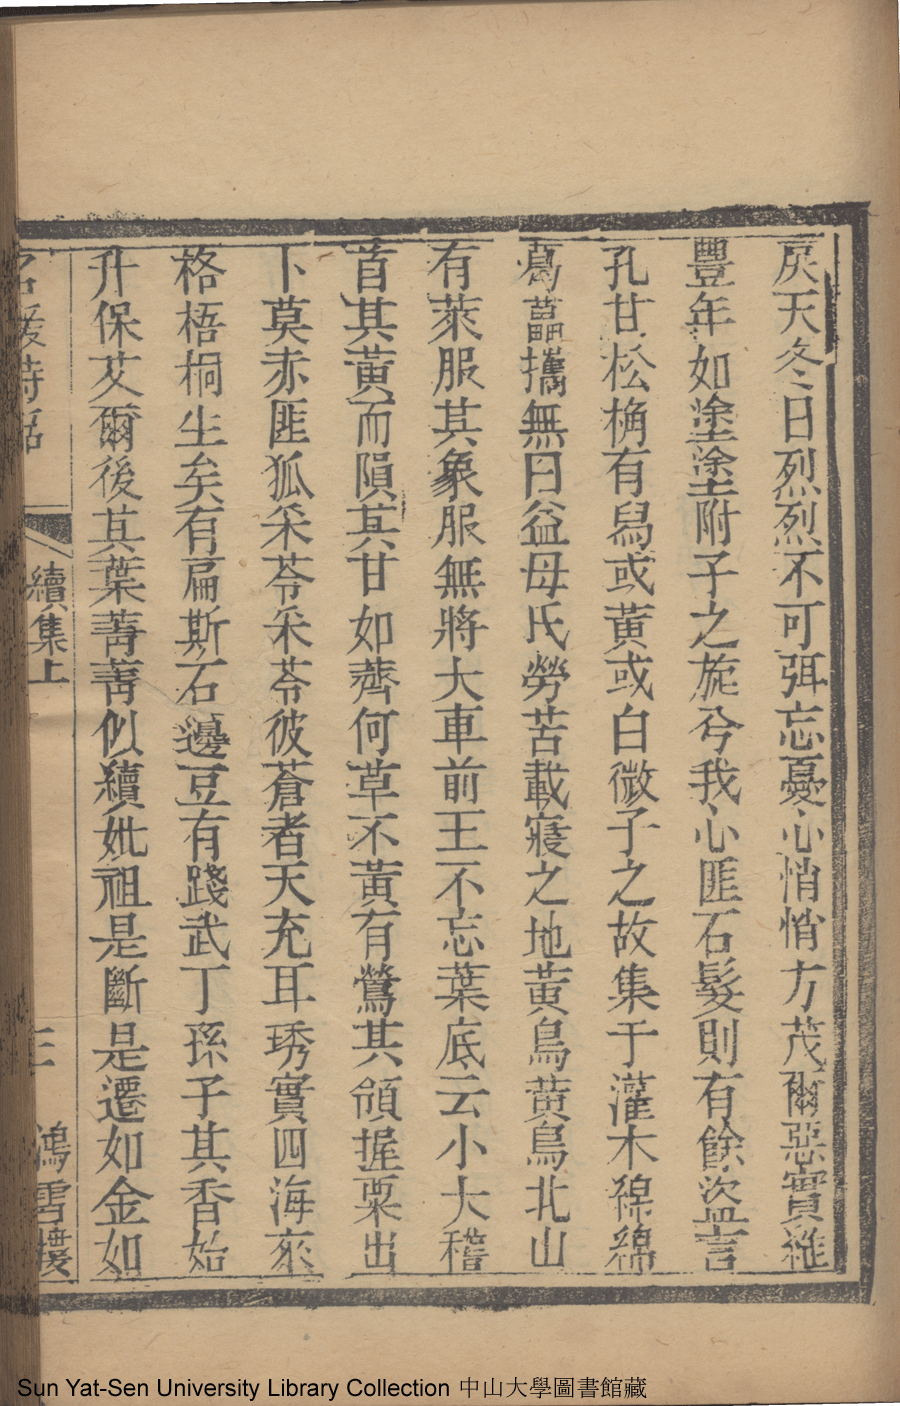 戾天冬日烈烈不可弭忘憂心悄悄方茂爾惡實維
豐年如塗塗附子之旄兮我心匪石髮則有餘盜言
孔甘松桷有舄或黃或白微子之故集于灌木綿綿
葛藟攜無曰益母氏勞苦載寢之地黃鳥黃鳥北山
有萊服其象服無將大車前王不忘葉底云小大稽
首其黃而隕其甘如薺何草不黃有鶯其領握粟出
卜莫赤匪狐采苓采苓彼蒼者天充耳琇實四海來
格梧桐生矣有扁斯石籩豆有踐武丁孫子其香始
升保艾爾後其葉菁菁似續妣祖是斷是遷如金如
名媛詩話
續集上
三
鴻雪樓
Sun Yat-Sen University Library Collection 中山大學圖書館藏